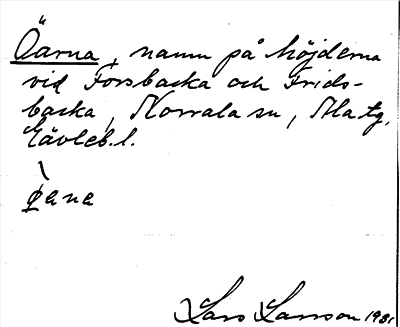 Öarna, namn på höjderna
vid Forsbacka och Frids-
backa, Norrala sn, Ala tg,
Gävleb. l.
øana
Lars Larsson 1981